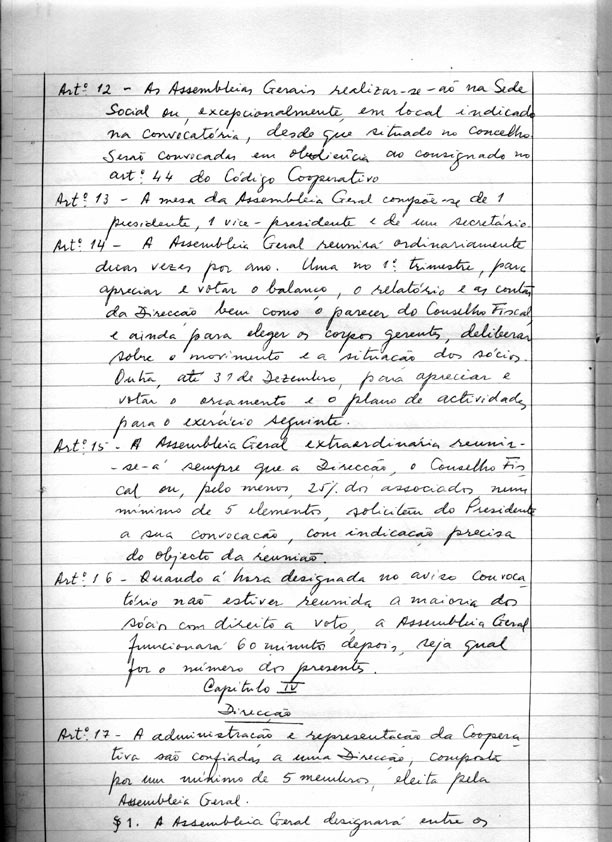 Artº 12 - As Assembleias Gerais realizar-se-ão na Sede
Social ou, excepcionalmente, em local indicado
na convocatória, desde que situado no concelho.
Serão convocadas em obediência ao consignado no
artº 44 do Código Cooperativo
Artº 13 - A mesa da Assembleia Geral compõe-se de 1
presidente, 1 vice-presidente e de um secretário.
Artº 14 - A Assembleia Geral reunirá ordinariamente
duas vezes por ano. Uma no 1º trimestre, para
apreciar e votar o balanço, o relatório e as contas
da Direcção bem como o parecer do Conselho Fiscal
e ainda para eleger os corpos gerentes, deliberar
sobre o movimento e a situação dos sócios.
Outra, até 31 de Dezembro, para apreciar e
votar o orçamento e o plano de actividades
para o exercício seguinte.
Artº 15 - A Assembleia Geral extraordinária reunir-
-se-á sempre que a Direcção, o Conselho Fis-
cal ou, pelo menos, 25% dos associados num
mínimo de 5 elementos, solicitem do Presidente
a sua convocação, com indicação precisa
do objecto da reunião.
Artº 16 - Quando á hora designada no aviso convoca-
tório não estiver reunida a maioria dos
sócios com direito a voto, a Assembleia Geral
funcionará 60 minutos depois, seja qual
for o número dos presentes.
Capítulo IV
Direcção
Artº 17 - A administração e representação da Coopera-
tiva são confiadas a uma Direcção, composta
por um mínimo de 5 membros, eleita pela
Assembleia Geral.
§ 1. A Assembleia Geral designará entre os